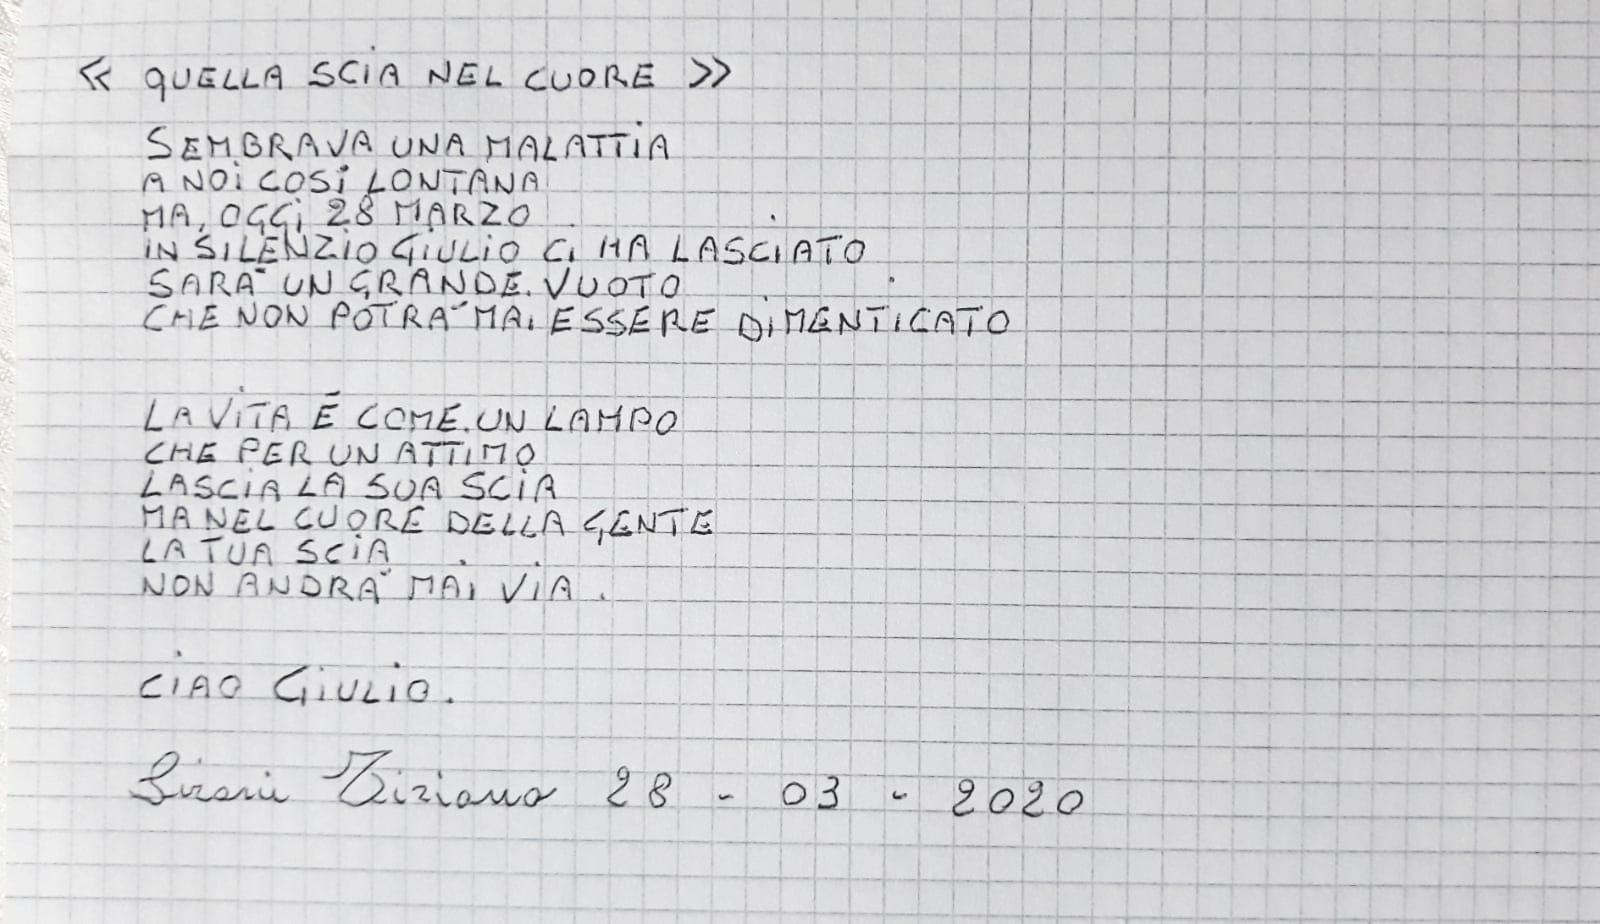 « QUELLA SCIA NEL CUORE »
SEMBRAVA UNA MALATTIA
A NOI COSÌ LONTANA
MA, OGGI 28 MARZO
IN SILENZIO GIULIO CI HA LASCIATO
SARÀ UN GRANDE VUOTO
CHE NON POTRÀ MAI ESSERE DIMENTICATO
LA VITA È COME UN LAMPO
CHE PER UN ATTIMO
LASCIA LA SUA SCIA
MA NEL CUORE DELLA GENTE
LA TUA SCIA
NON ANDRÀ MAI VIA.
CIAO GIULIO.
Tiziano 28 - 03 - 2020